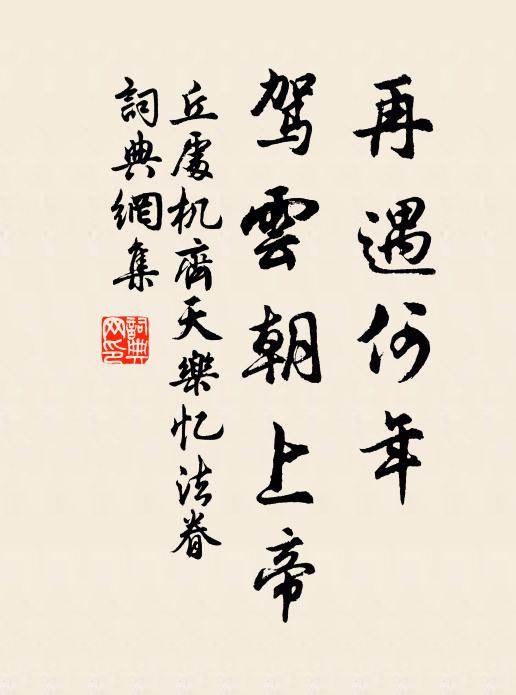 再遇何年
駕雲朝上帝
丘處机齊天樂忆法眷
詞典網集
詞典网印